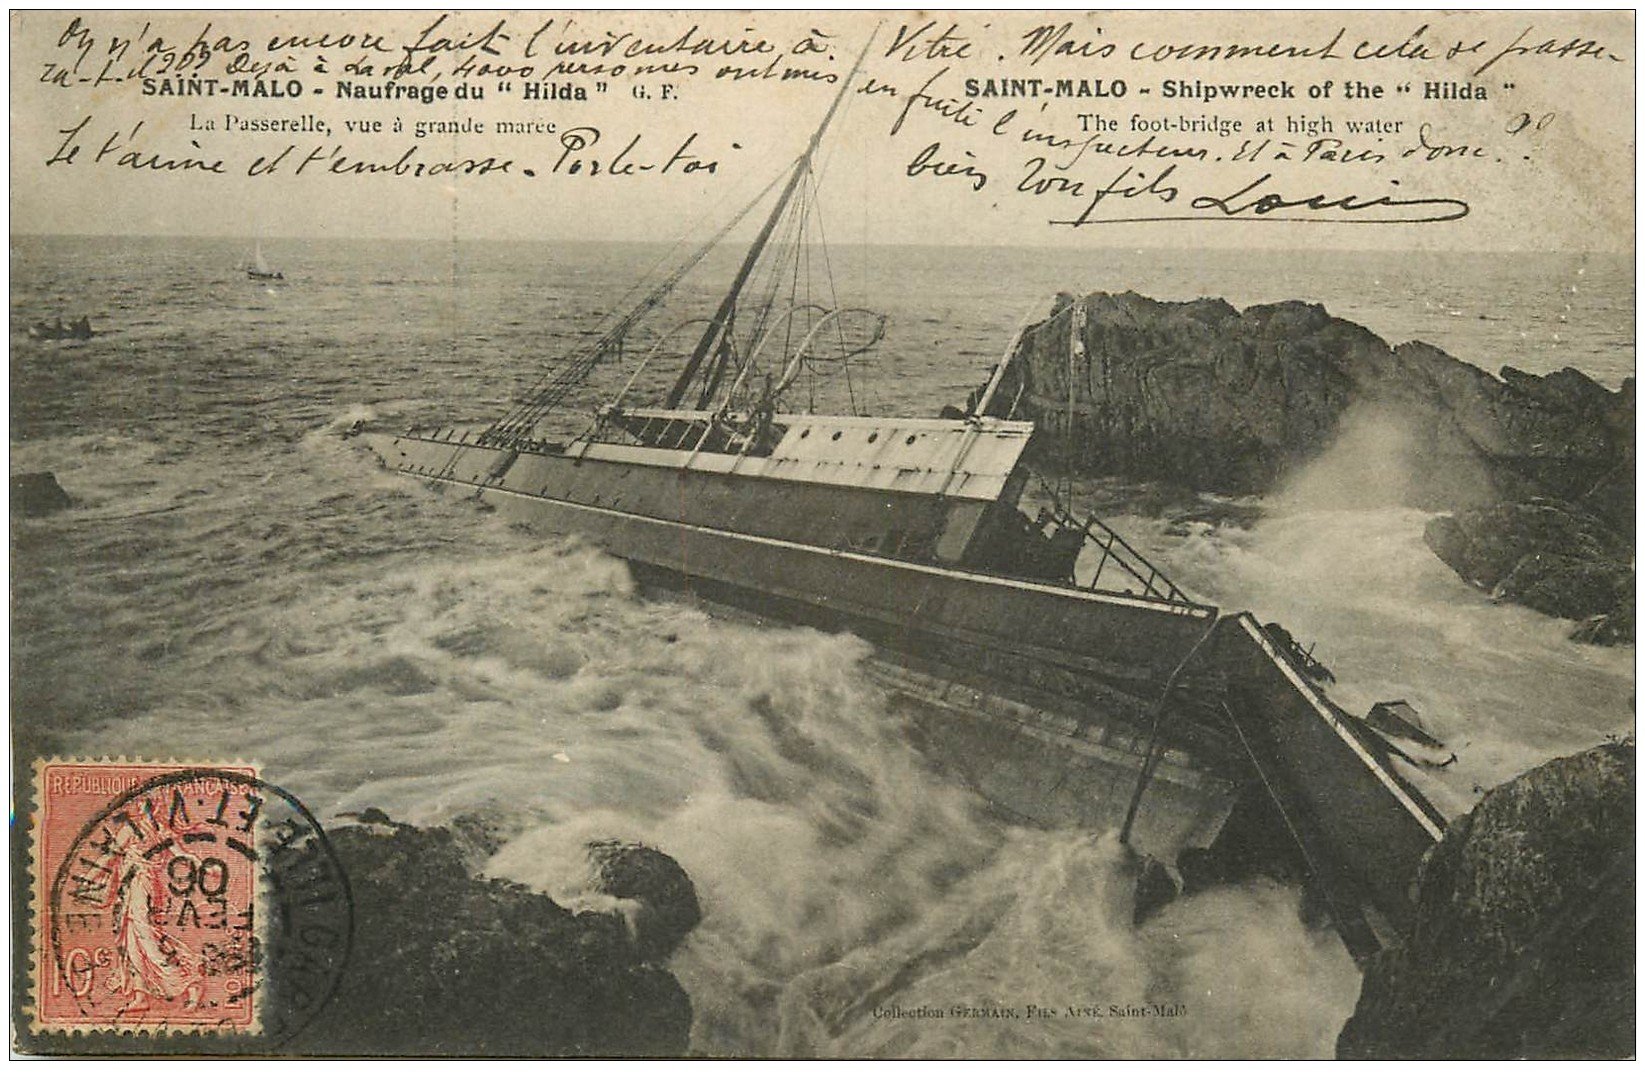 On n'a pas encore fait l'inventaire à Vitré. Mais comment cela se passe-
ra-t-il ??? Dejà à Laval, 4000 personnes ont mis en fuite l'inspecteur. Et à Paris donc..
SAINT-MALO - Naufrage du " Hilda " G. F.
SAINT-MALO - Shipwreck of the " Hilda "
La Passerelle, vue à grande marée
The foot-bridge at high water
Je t'aime et t'embrasse. Porte-toi
bien Ton fils Louis
REPUBLIQUE FRANÇAISE
10c
ET-VILAINE
06
Collection GERMAIN, FILS AINÉ, Saint-Malo